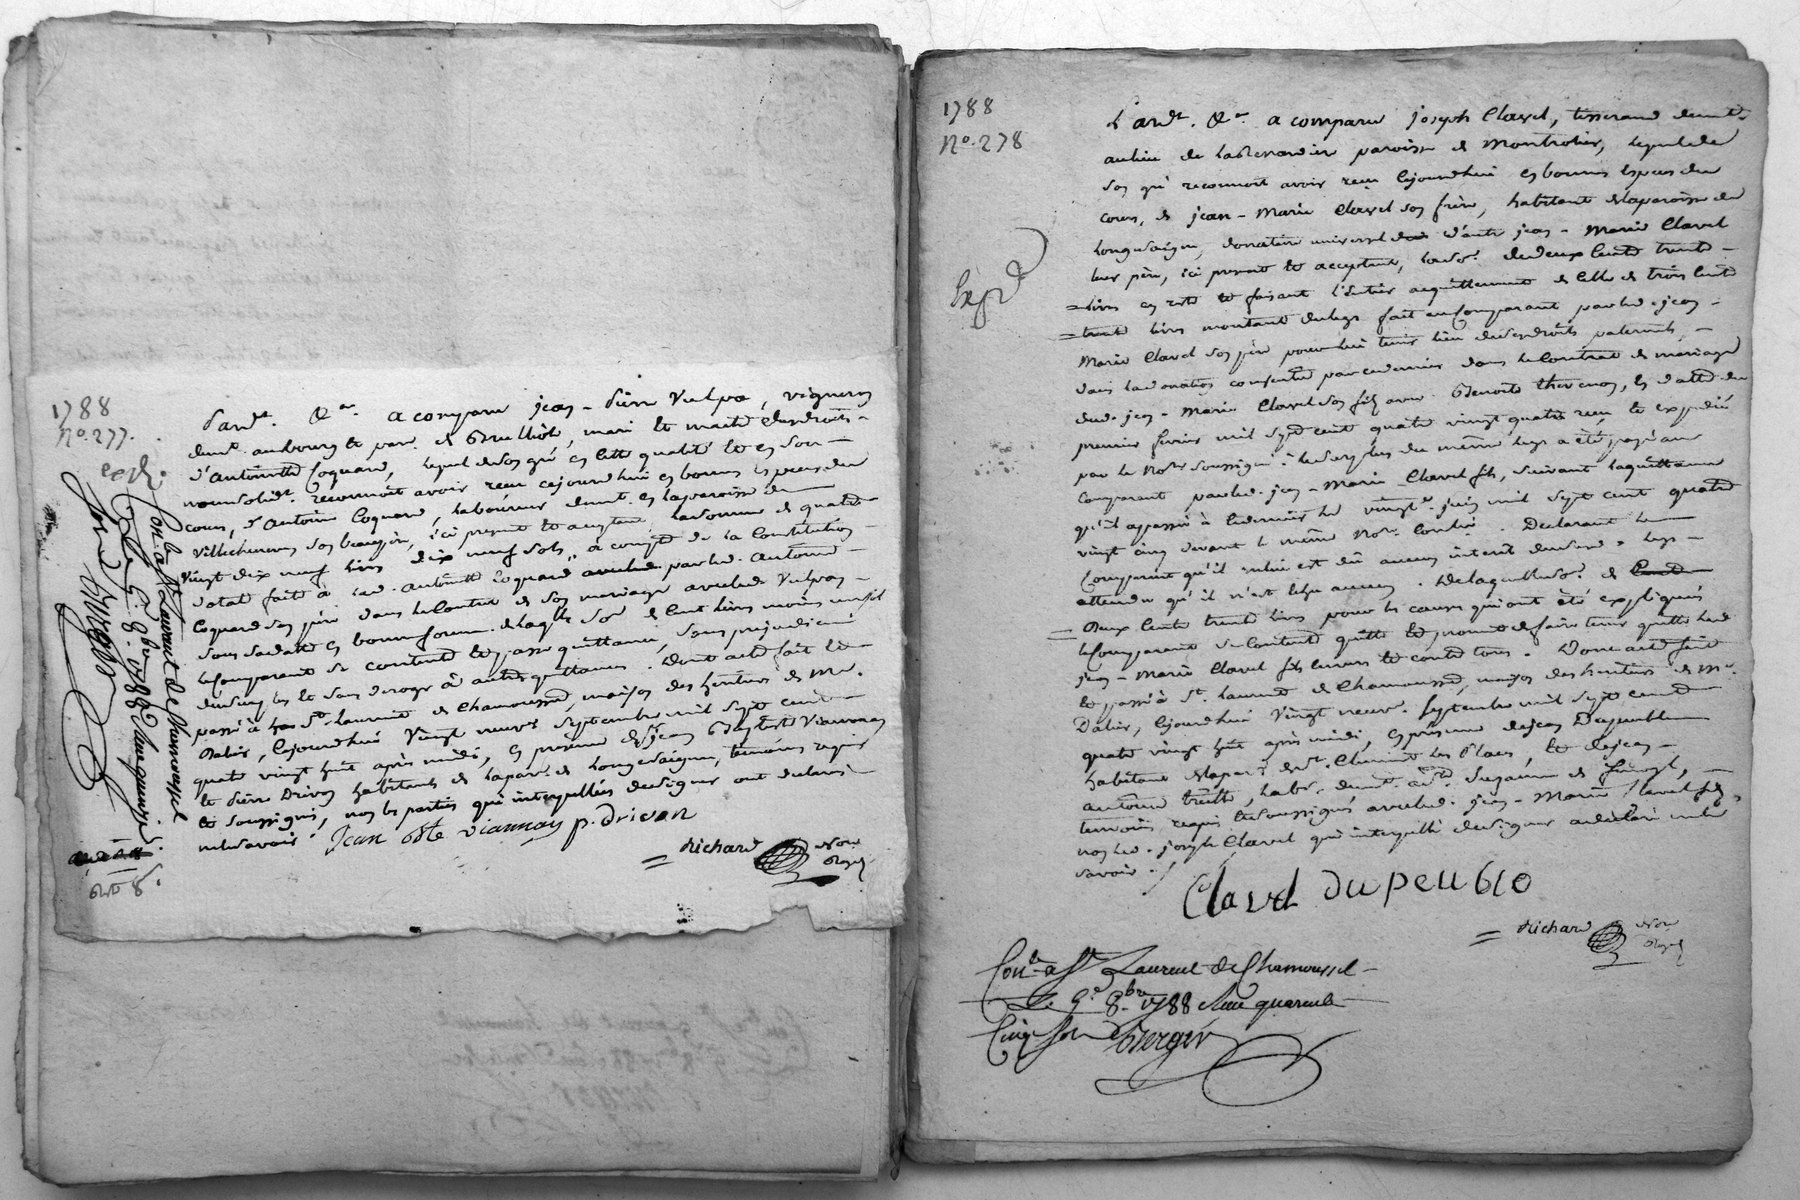 1788
No. 277.
expd.
Pardt. &a. a comparu jean-pierre Vulpas, vigneron
demt. au bourg et par. de Brulliole, mari et maitre des droits
d'antoinette Coquard, lequel de son gré en cette qualité et en son
nom solidt. reconnoit avoir reçu cejourdhui en bonnes especes du
cours, d'antoine Coquard, laboureur demt. en la paroisse de
Villechenève son beaupère, ici présent et acceptant, la somme de quatre
vingt dix neuf livres dix neuf sols, a compte de la Constitution
dotale faite à lad. antoinette Coquard par led. antoine
Coquard son père dans le Contrat de son mariage avec led. Vulpas
sous sa datte en bonne forme. de laqlle. some. de Cent livres moins un sol
le Comparant se contente et passe quittance, sous préjudice
du surplus et sans deroger à autres quittances. Dont acte fait et
passé à St. Laurent de Chamousset, maison des héritiers de Mr.
Dalier, cejourdhui vingt neuve. Septembre mil sept cent
quatre vingt huit après midi, en présence de jean Baptiste Viannay
et pierre Drivon habitants de la par. de Longessaigne, témoins requis
et soussignés, non les parties qui interpellées de signer ont déclaré
ne le savoir. Jean Bte viannay p. Drivon
= Richard Nore Royal
Con.le a St Laurent de Chamousset
Le 9. 8bre 1788 Reçu quinze
sols Berger
1788
No. 278
Expd
Pardt. &a. a comparu joseph Clavel, tisserand demt.
au lieu de paroisse de Montrotier, lequel de
son gré reconnoit avoir reçu cejourdhui en bonnes especes du
cours, de jean-Marie Clavel son frère, habitant de la paroisse de
Longessaigne, donataire universel d'autre jean-Marie Clavel
leur père, ici présent et acceptant, la so. de deux Cents trente
=livres en reste et faisant l'entier acquittement de celle de trois Cents
=trente livres montant du legs fait au Comparant par led. jean-
Marie Clavel son père pour lui tenir lieu de ses droits paternels,
dans la donation consentie par ce dernier dans le Contrat de mariage
dud. jean-Marie Clavel son fils avec Benoite thevenon, en datte du
premier février mil sept cent quatre vingt quatre reçu et expédié
par le Nore soussigné: le surplus du même legs a été payé au
Comparant par led. jean-Marie Clavel fils, suivant la quittance
qu'il a passée à ce dernier le vingt. juin mil sept cent quatre
vingt cinq devant le même Nore. Declarant le
Comparant qu'il ne lui est dû aucun intérêt dud. legs
attendu qu'il n'est échu aucun. De laquelle so. de
=Deux Cents trente livres pour les causes qui ont été expliquées
le Comparant se Contente quitte et promet de faire tenir quitte led.
jean-Marie Clavel fils envers et contre tous. Dont acte fait
et passé à St. Laurent de Chamousset, maison des héritiers de Mr.
Dalier, cejourdhui Vingt neuve. Septembre mil sept cent
quatre vingt huit après midi, en présence de jean Dupeuble
habitant de la par. de St. Clement les Places, et de jean-
antoine habt. demt. aud. de
temoins requis et soussignés avec led. jean-Marie Clavel fils,
non led. joseph Clavel qui interpellé de signer a déclaré ne le
savoir.
Clavel Dupeuble
= Richard Nore Royal
Con.le a St Laurent de Chamousset
Le 9e 8bre 1788 Reçu quarante
Cinq sols Berger